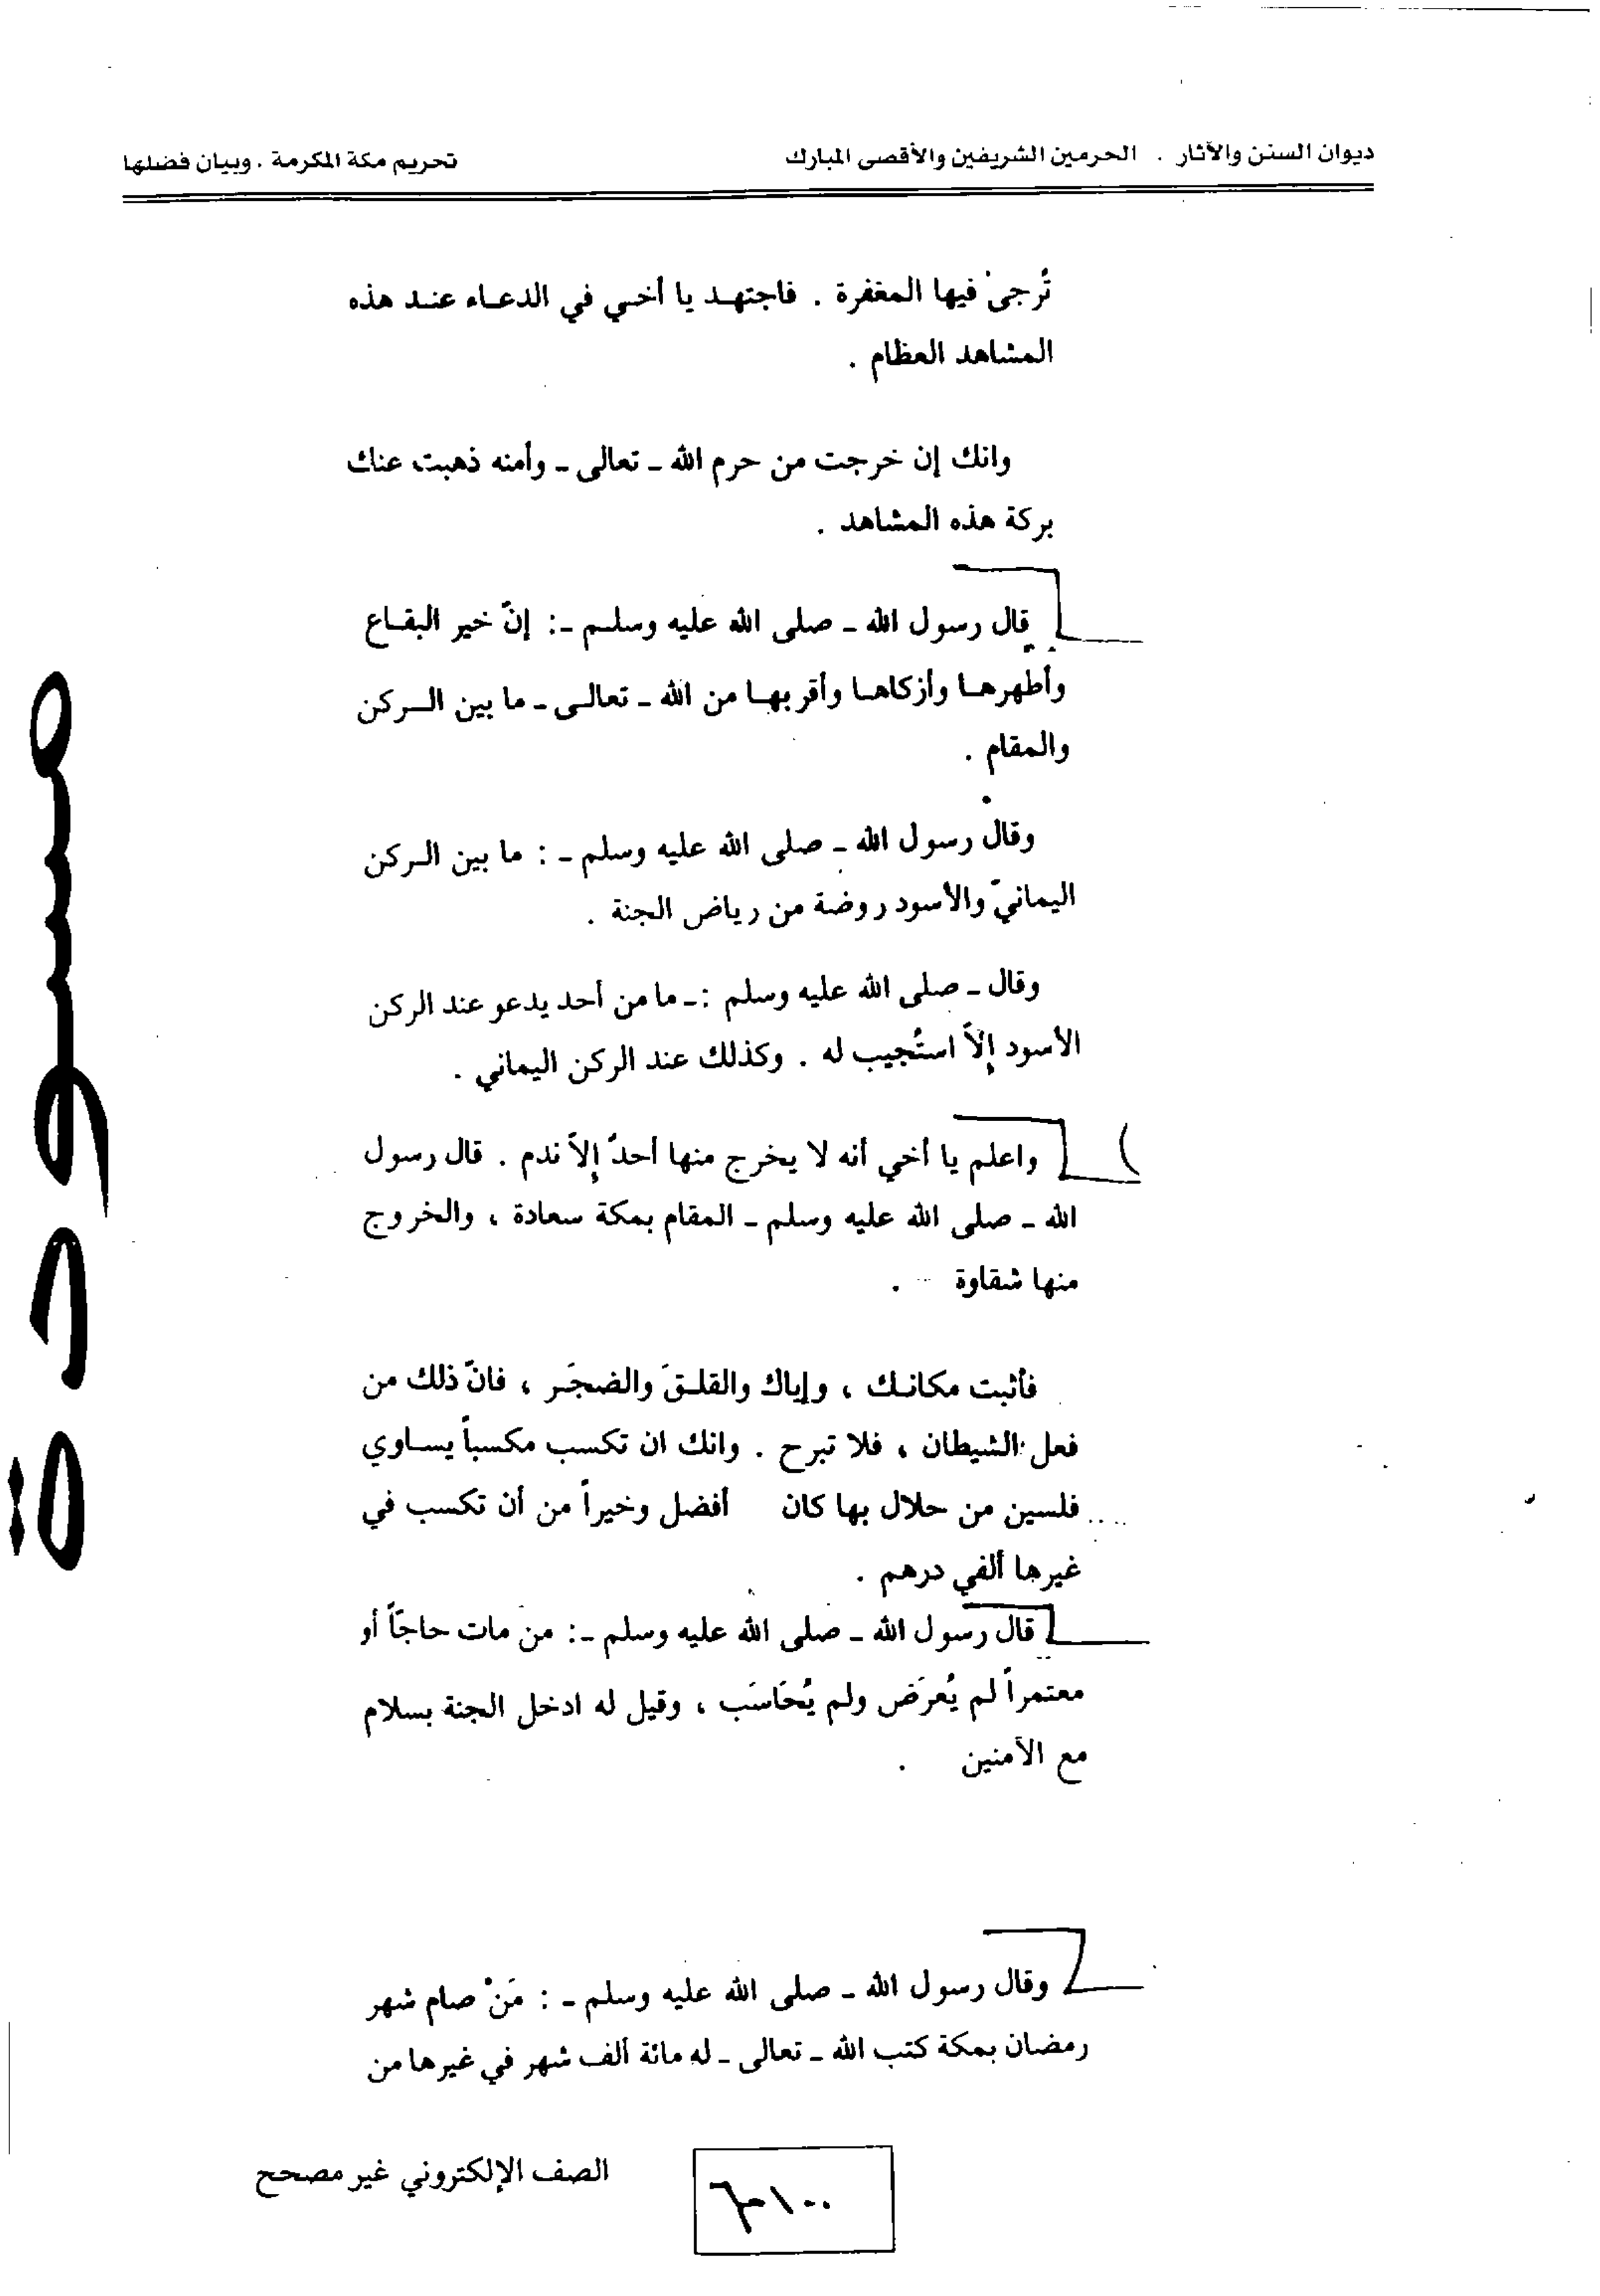 ديوان السنن والآثار . الحرمين الشريفين والأقصى المبارك
تحريم مكة المكرمة . وبيان فضلها
تُرجىْ فيها المغفرة . فاجتهد يا أخي في الدعاء عند هذه
المشاهد العظام .
وانك إن خرجت من حرم الله - تعالى - وأمنه ذهبت عنك
بركة هذه المشاهد .
قال رسول الله - صلى الله عليه وسلم -: إنّ خير البقاع
وأطهرها وأزكاها وأقربها من الله - تعالى - ما بين الركن
والمقام .
وقال رسول الله - صلى الله عليه وسلم - : ما بين الركن
اليمانيّ والأسود روضة من رياض الجنة .
وقال - صلى الله عليه وسلم :- ما من أحد يدعو عند الركن
الأسود إلاّ استُجيب له . وكذلك عند الركن اليماني .
واعلم يا أخي أنه لا يخرج منها أحدٌ إلاّ ندم . قال رسول
الله - صلى الله عليه وسلم - المقام بمكة سعادة ، والخروج
منها شقاوة .
فأثبت مكانك ، وإياك والقلقَ والضجَر ، فانّ ذلك من
فعل الشيطان ، فلا تبرح . وانك ان تكسب مكسباً يساوي
فلسين من حلال بها كان أفضل وخيراً من أن تكسب في
غيرها ألفي درهم .
قال رسول الله - صلى الله عليه وسلم -: من مات حاجّاً أو
معتمراً لم يُعرَض ولم يُحَاسَب ، وقيل له ادخل الجنة بسلام
مع الآمنين .
وقال رسول الله - صلى الله عليه وسلم - : مَنْ صام شهر
رمضان بمكة كتب الله - تعالى - له مائة ألف شهر في غيرها من
الصف الإلكتروني غير مصحح
مسودة